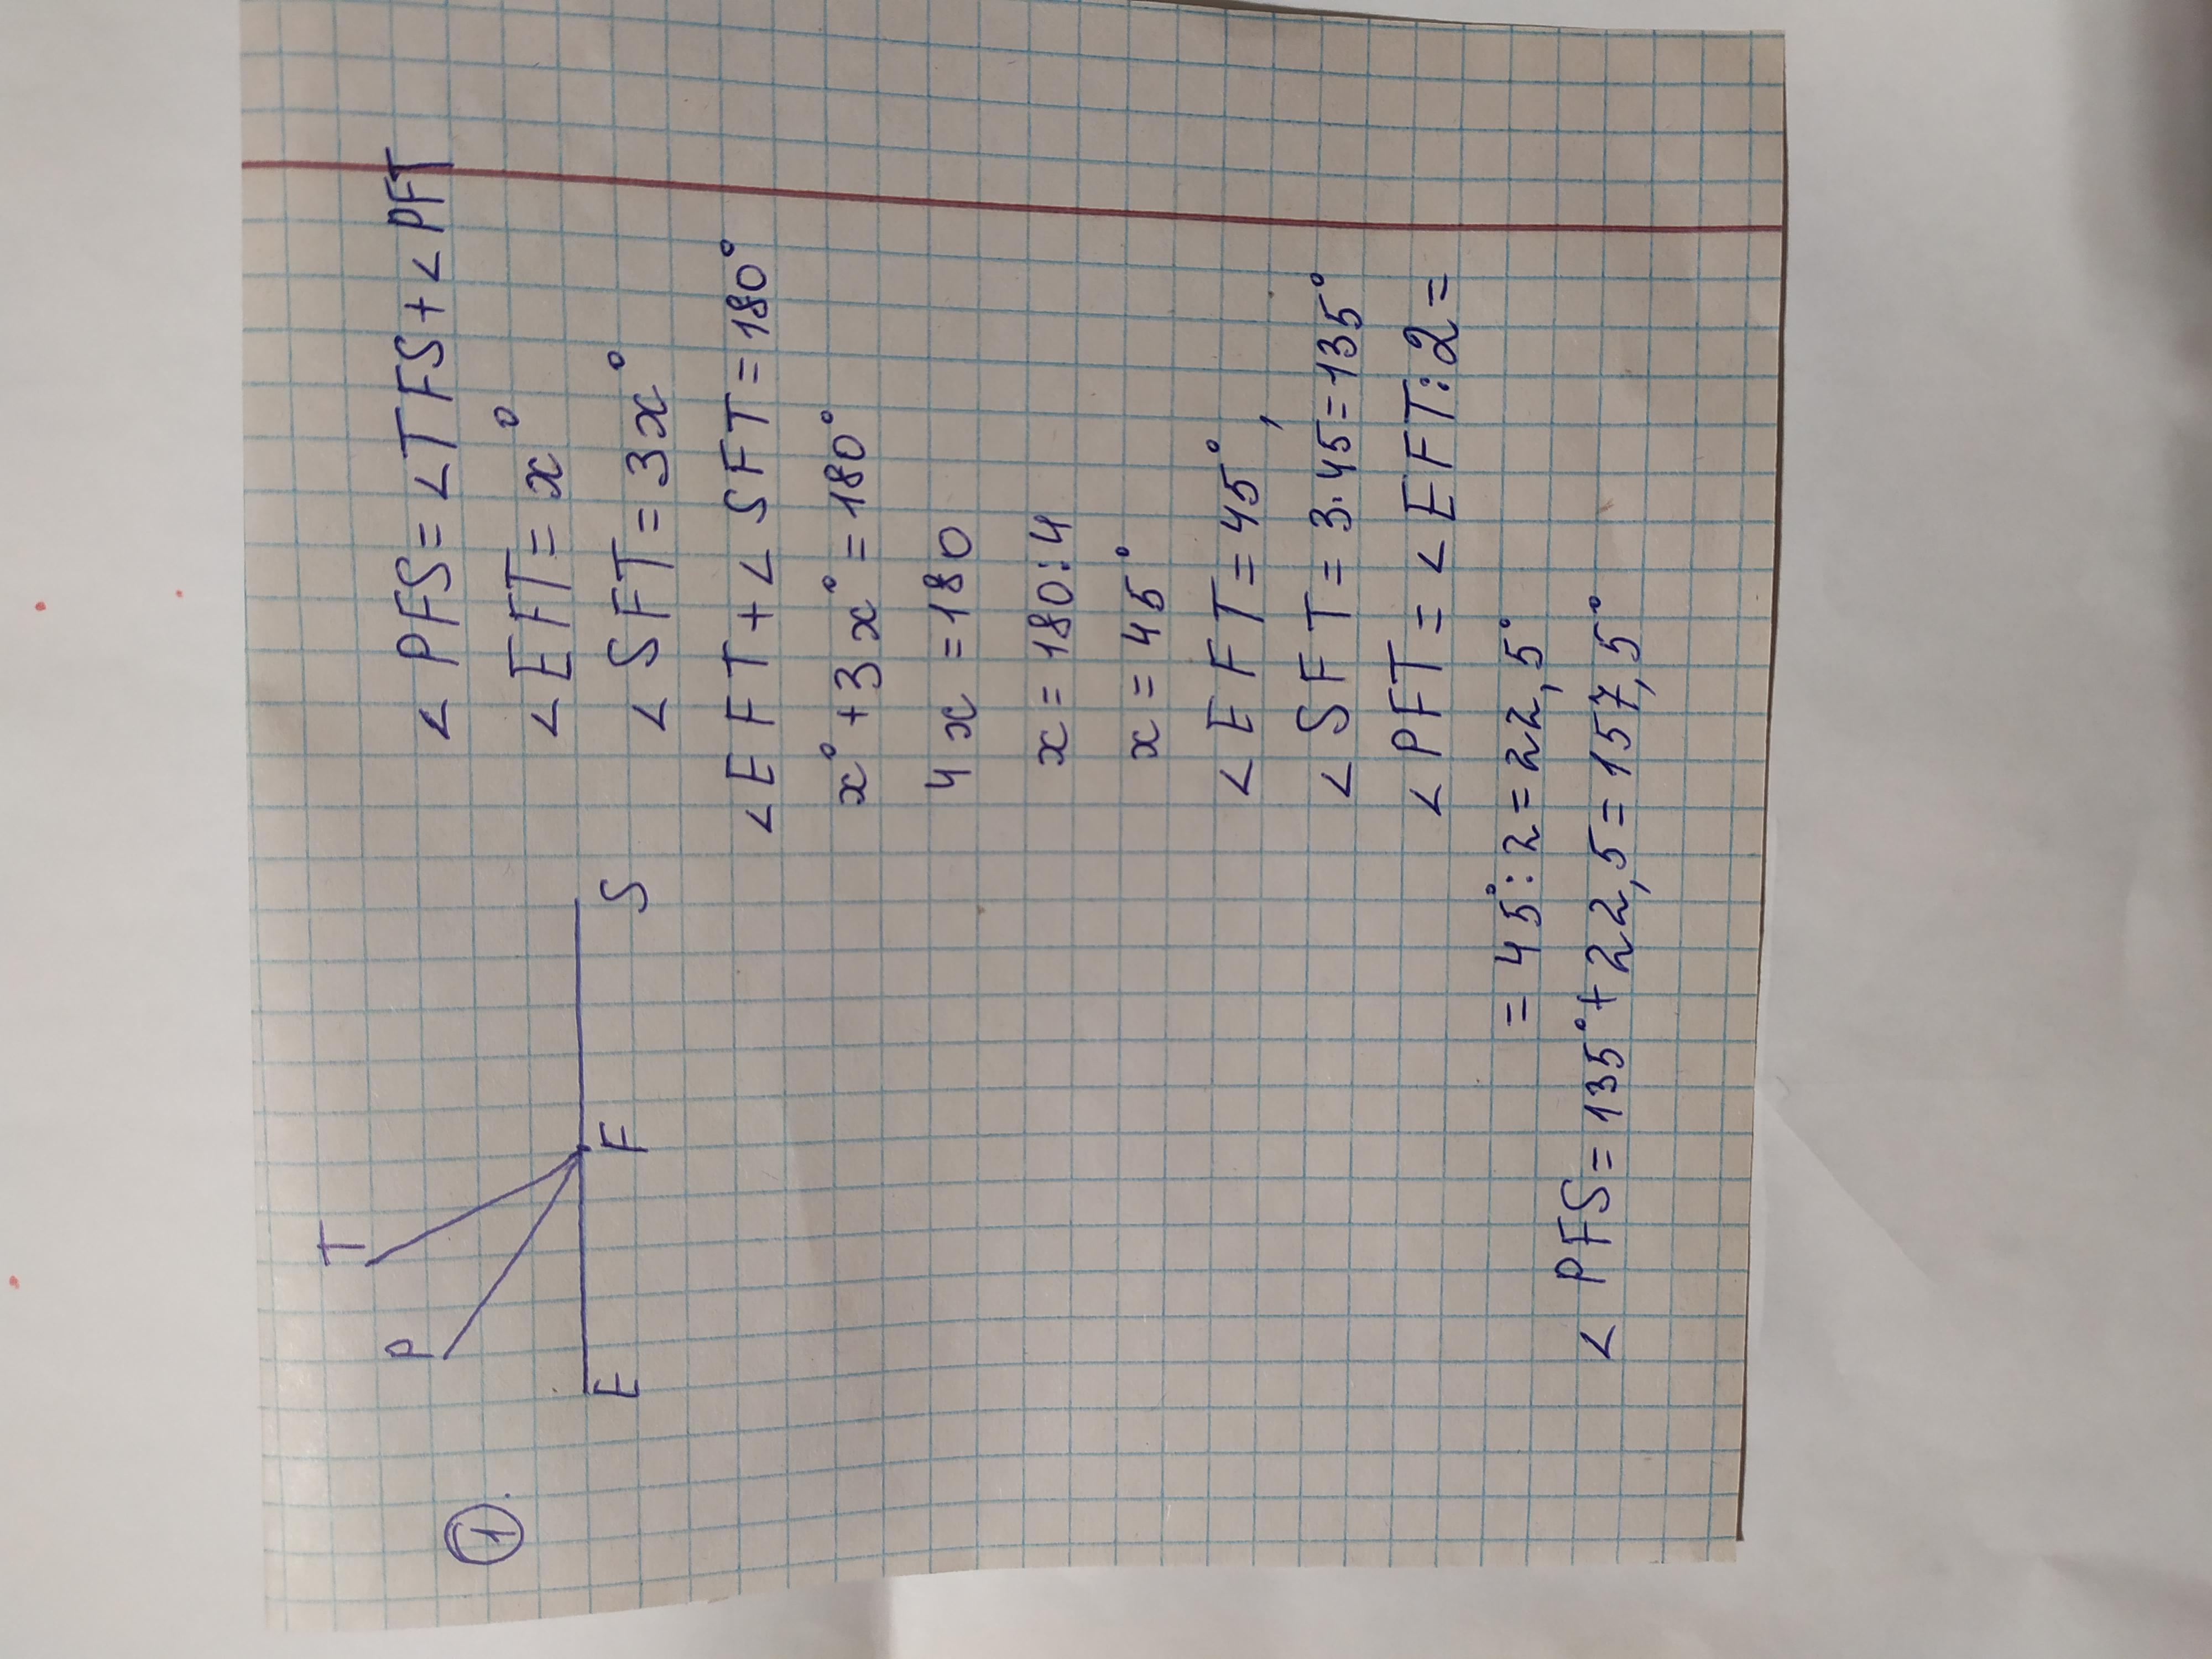 1
T
P
E
F
S
∠ PFS = ∠TFS + ∠PFT
∠EFT = x°
∠ SFT = 3x°
∠EFT + ∠ SFT = 180°
x° + 3x° = 180°
4x = 180
x = 180 : 4
x = 45°
∠ EFT = 45°,
∠ SFT = 3·45 = 135°
∠ PFT = ∠ EFT : 2 =
= 45° : 2 = 22,5°
∠ PFS = 135° + 22,5 = 157,5°